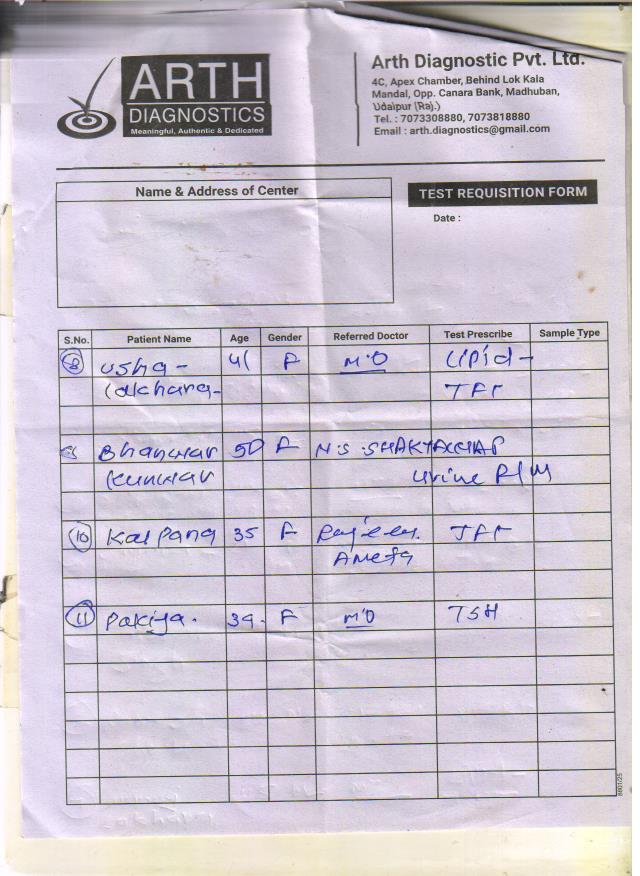 ARTH
DIAGNOSTICS
Meaningful, Authentic & Dedicated
Arth Diagnostic Pvt. Ltd.
4C, Apex Chamber, Behind Lok Kala
Mandal, Opp. Canara Bank, Madhuban,
Udaipur (Raj.)
Tel. : 7073308880, 7073818880
Email : arth.diagnostics@gmail.com
Name & Address of Center
TEST REQUISITION FORM
Date :
S.No. Patient Name Age Gender Referred Doctor Test Prescribe Sample Type
8 Usha - 41 F M·O Lipid -
TFT
Bhanwar 50 F N·S
Kunwar Urine R/M
10 Kalpana 35 F TFT
Ameta
11 39 F M·O TSH